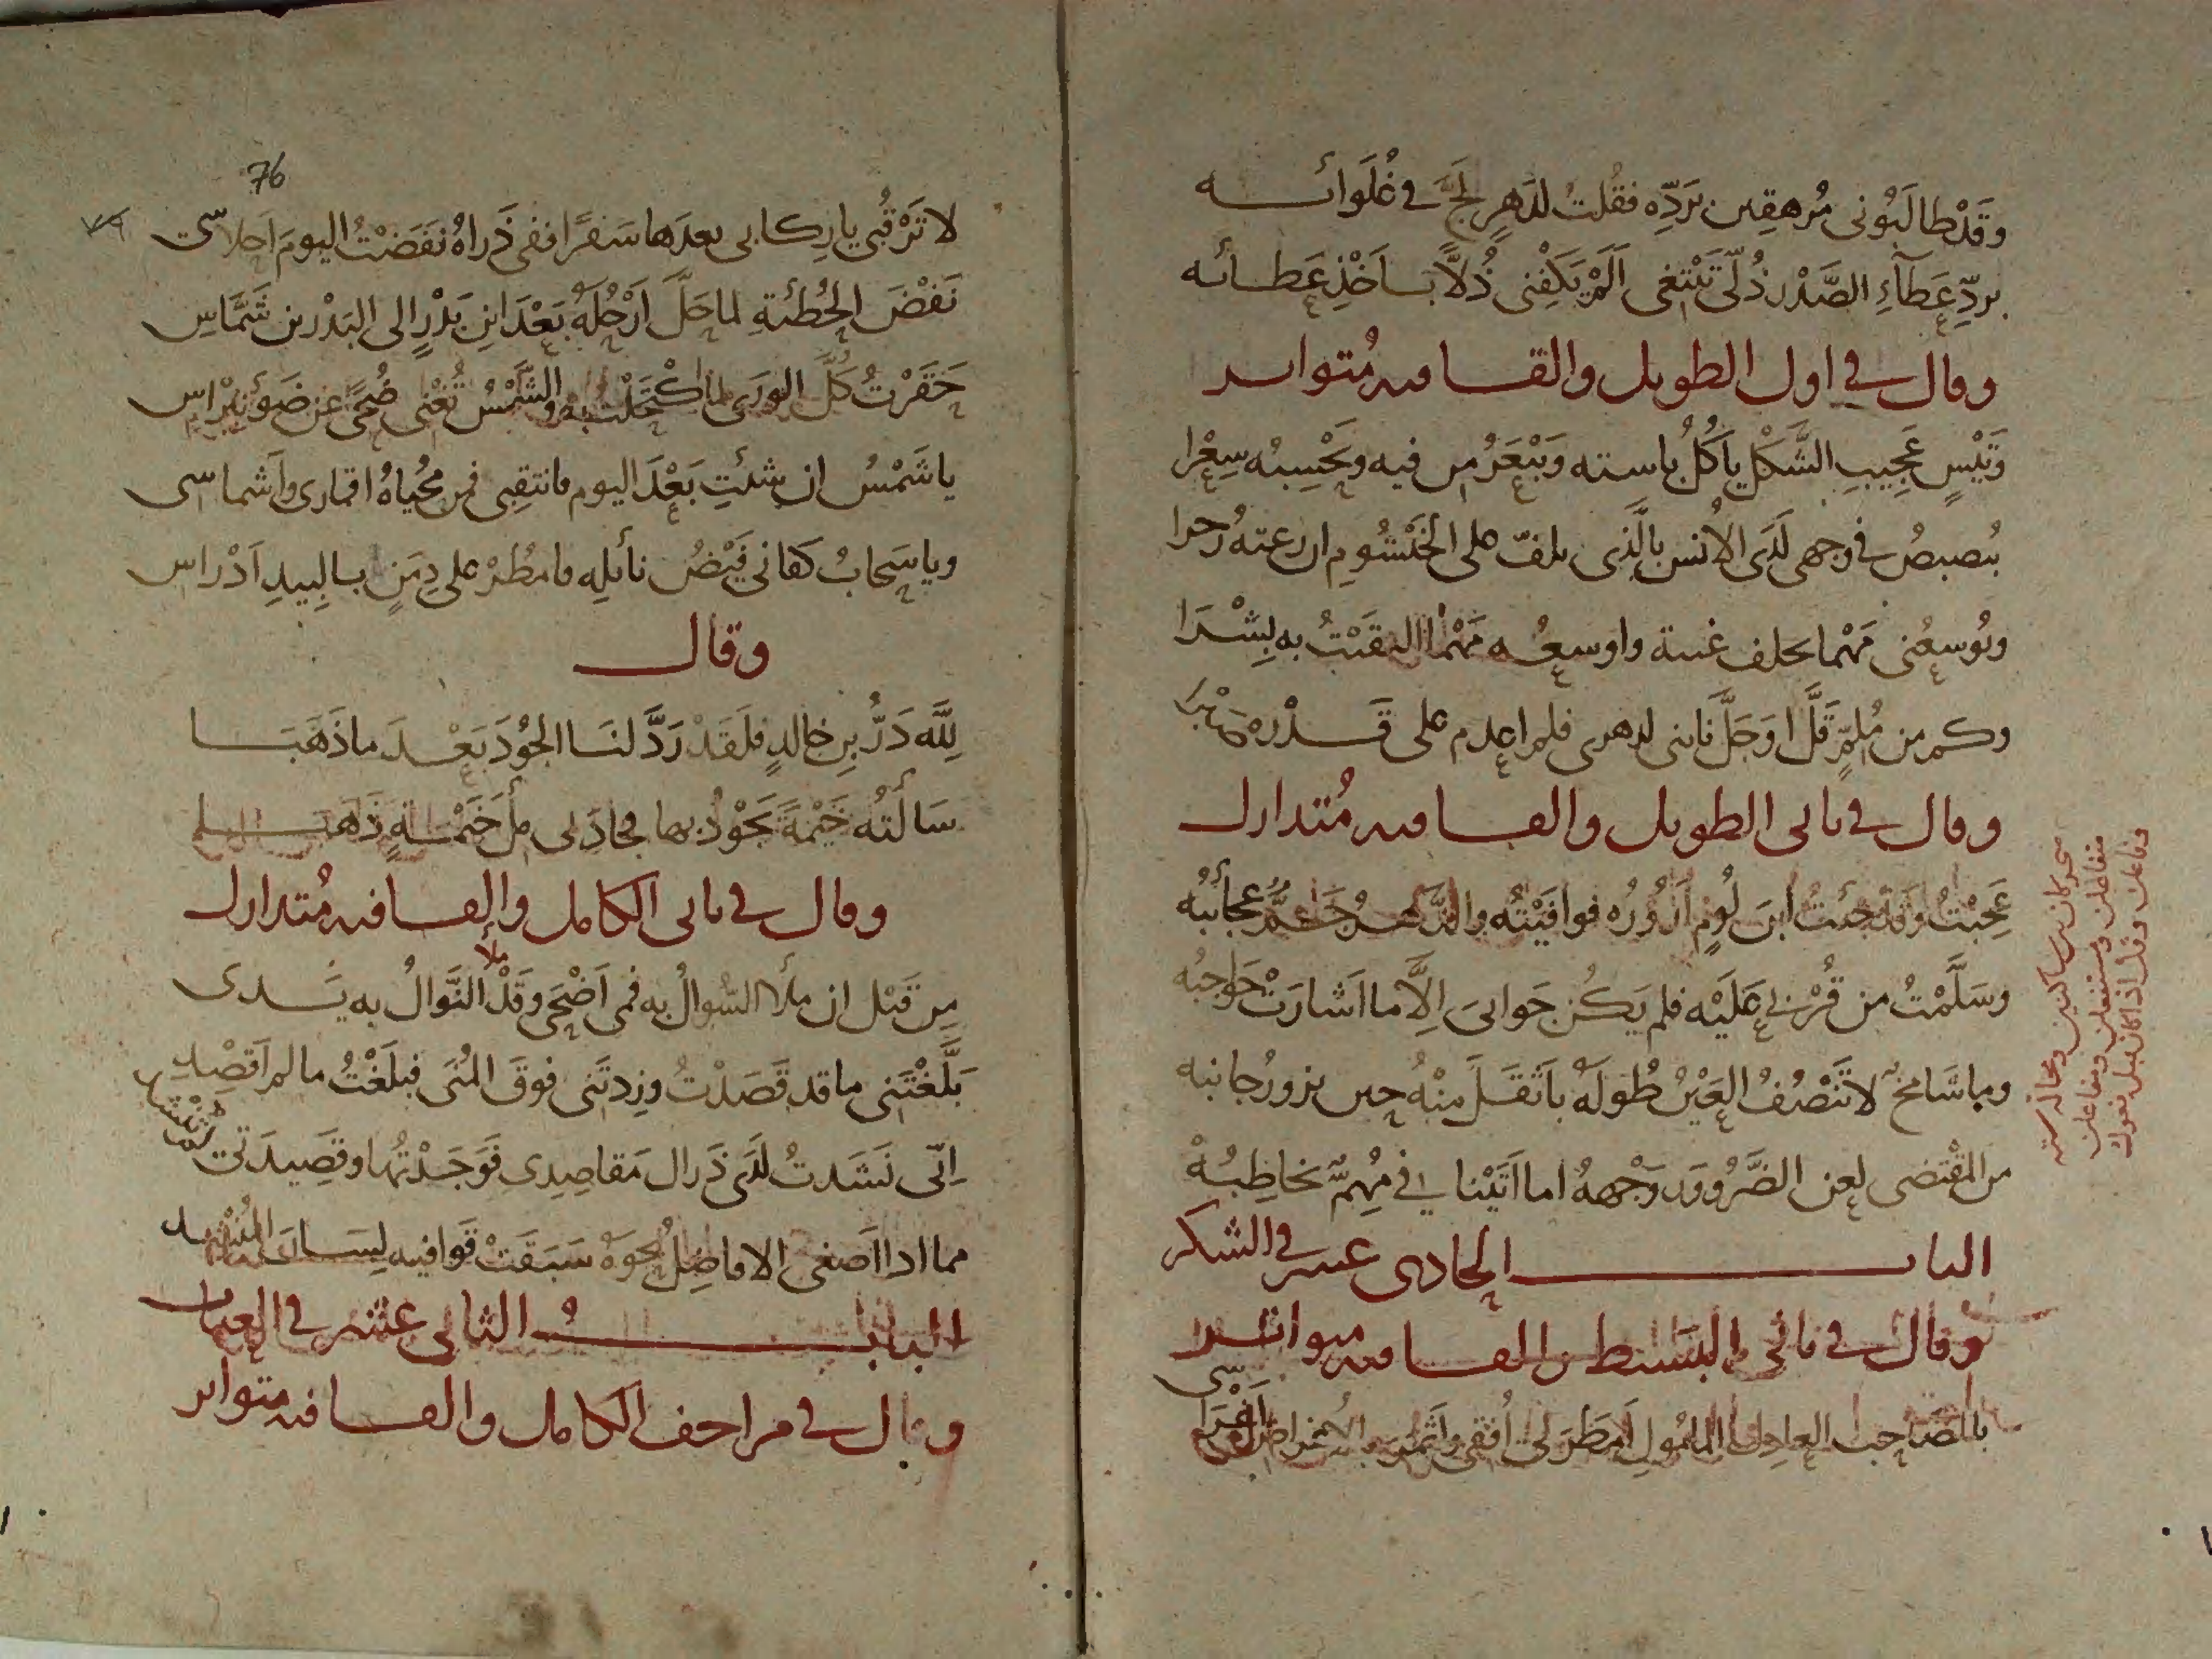 وَقَدْ طالَبُونى مُرهِقين بَردِّه فقُلتُ لدَهرٍ لَجَّ فى غُلَوائــه
بردِّ عَطآءِ الصَّدْر ذُلّى تَبْتغى اَلَمْ يَكفِنى ذُلاًّ بـاَخْذِ عَطـائه
وقال فى اول الطويل والقـافيه مُتواتـر
وَتَيْسٍ عَجِيبِ الشَّكْلِ يأكُلُ باسته وَيَبْعَرُ من فيه وتَحْسِبُه سِعْرا
يُصبصُ فى وجهى لَدَى الاُنس بالَّذى يلفّ على الخَيْشُومِ ان رعته
وتُوسعُنى مَهْما تخلف غيبة واوسعُــه مَهْما التقَيْتُ به بِشْرَا
وكم من مُلِمٍّ قَلَّ اَوجَلَّ نابنى لدهرى فلم اعدم على قَــدْره صَبْرا
وقال فى ثانى الطويل والقـافيه مُتدارك
عَجِبْتُ وَقَدْ جئتُ ابنَ لُومٍ اَزُورُه فوافَيْتُه والدَّهــرُ جَــمٌّ عجائبُه
وسَلَّمْتُ من قُرْبٍ عَلَيْه فلم يَكُن جَوابىَ اِلاَّ ما اَشارَتْ حَواجبُه
وما شَامخٌ لا تَنْصُفُ العَيْنُ طُولَه باَثقَــلَ مِنْهُ حين يزورُ جانبه
من المقْتضى لعن الضَّرُو وَجْههُ اما اَتَيْنا فى مُهِمٍّ نخاطبُهْ
البابـــ الحادى عشر فى الشكر
وقال فى ثانى البَسيط والقـافيه متواتـر
باالصَّاحب العادِل المأمُولِ اَمطَرَ لى اُفقى واَثمَرَ بالاَغراض اَغْراسى
متفاعلن ومستفعلن ومفاعلن
76
٧٩
لا تَرْقُبى يا رِكابى بعدَها سَفرًا ففى ذَراهُ نَفَضْتُ اليومَ اَحلاسى
نَفْضَ الحُطَئةِ لما حَلَّ اَرْحُلَهُ بَعْدَ ابنِ بَدْرٍ الى البَدْر بن شَمَّاسِ
حَقَرْتُ كُلَّ الورَى لما اكْتَحَلْتُ به والشَّمْسُ تُغْنى ضُحًى عن ضَوْءِ نِبْراسِ
يا شَمْسُ ان شئتِ بَعْدَ اليوم فانتقِبى فمن مُحَيَّاهُ اقمارى وَاَشماسى
ويا سَحابُ كفانى فَيْضُ نائلِه فامْطُرْ على دِمَنٍ بـالبِيدِ اَدْراسِ
وقال
لِلَّه دَرُّ بنِ خالدٍ فلَقَدْ رَدَّ لنَـا الجُوْدَ بَعْـدَ ما ذَهَبَـا
سَالتُه خَيْمَةً يَجُوْدُ بها فجادَ لى مِلْ خَيْمـةٍ ذَهَبـا
وقال فى ثانى الكامل والقـافيه مُتدارك
مِن قَبْل ان مَلأَ السُّوالُ به فمى اَضْحَى وقَدْ ملأ النَّوالُ به يَــدى
بَلَّغْتَنى ما قد قَصَدْتُ وزِدتَنى فوقَ المُنَى فبَلَغْتُ ما لم اَقصْدِ
اِنّى نَشَدتُ لَدَى ذَراك مَقاصِدِى فَوَجَــدْتُها وقَصِيدَتى لم تُنْشَدِ
مما اذا اَصغى الافاضِلُ نحوَه سَبَقَتْ قَوافيه لِسَــانَ المُنْشِد
البابــُ الثانى عشر فى العتاب
وقال فى مزاحف الكامل والقـافيه متواتر